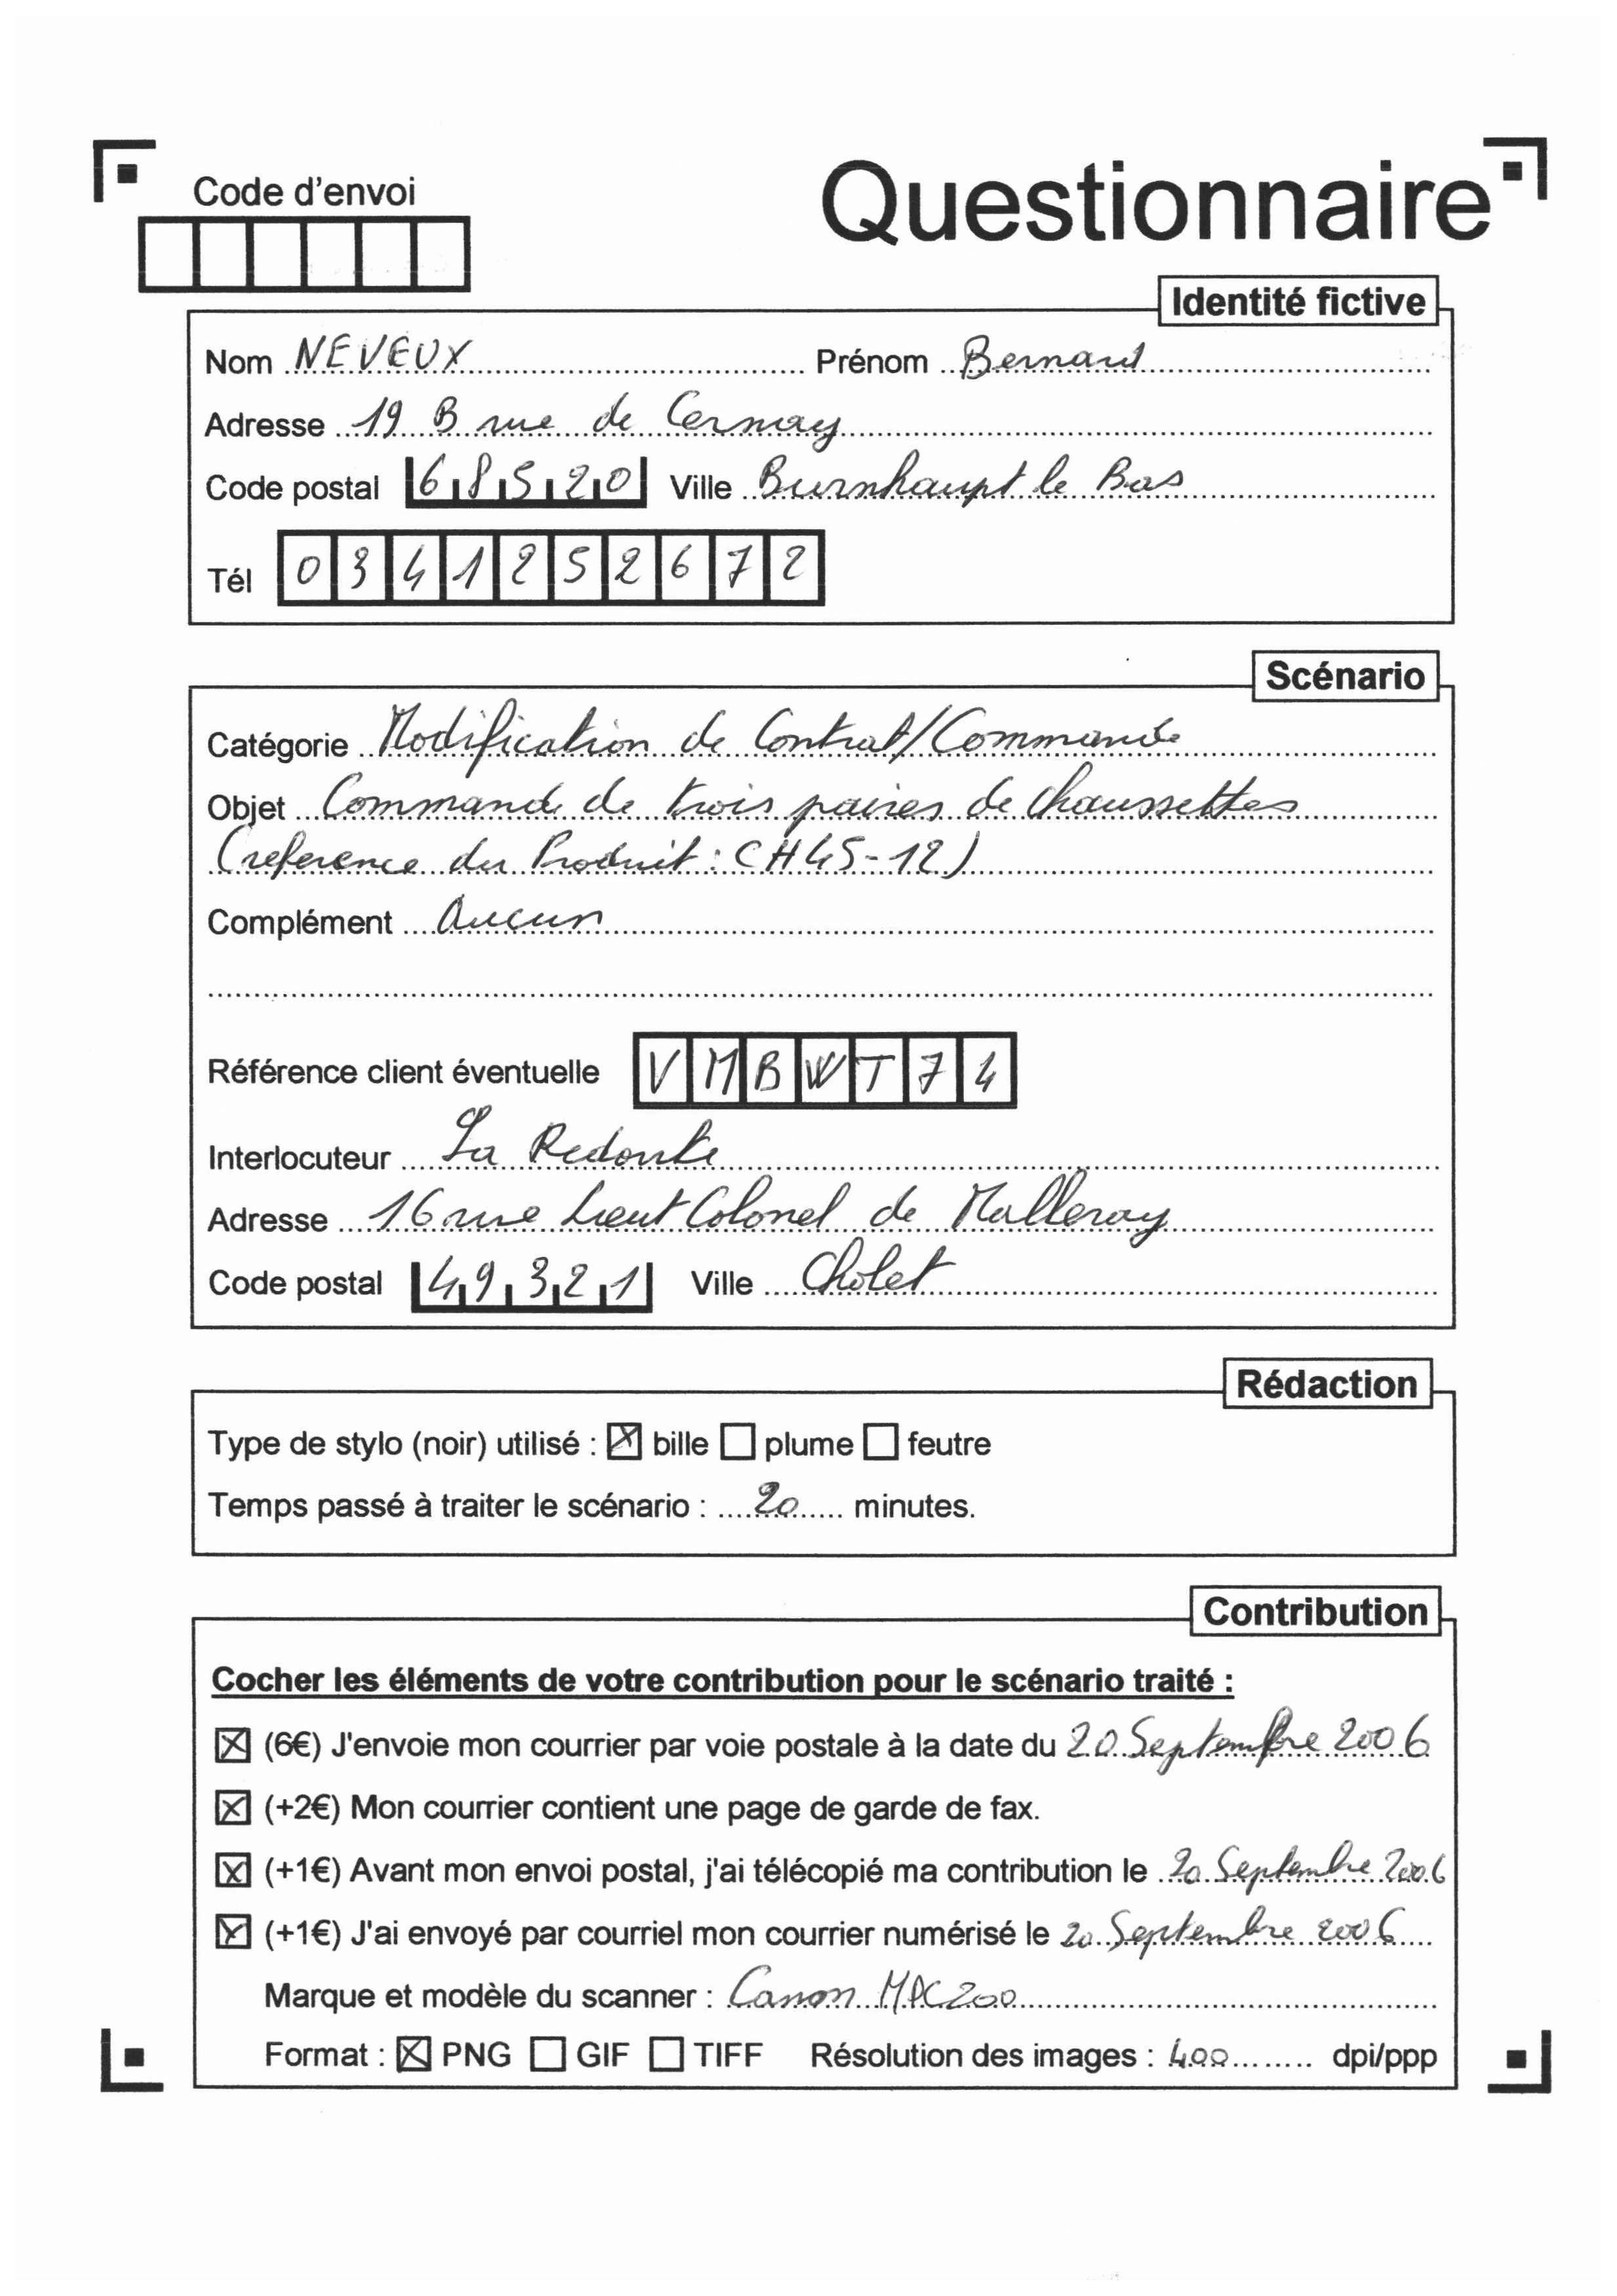 Code d'envoi
Questionnaire
Identité fictive
Nom NEVEUX Prénom Bernard
Adresse 19 B rue de Cernay
Code postal 68520 Ville Burnhaupt le Bas
Tél 0341252672
Scénario
Catégorie Modification de Contrat/Commande
Objet Commande de trois paires de chaussettes
(reference du Produit : CH45-12)
Complément Aucun
Référence client éventuelle VMBWT74
Interlocuteur La Redoute
Adresse 16 rue Lieut Colonel de Malleray
Code postal 49321 Ville Cholet
Rédaction
Type de stylo (noir) utilisé : bille plume feutre
Temps passé à traiter le scénario : 20 minutes.
Contribution
Cocher les éléments de votre contribution pour le scénario traité :
(6€) J'envoie mon courrier par voie postale à la date du 20 Septembre 2006
(+2€) Mon courrier contient une page de garde de fax.
(+1€) Avant mon envoi postal, j'ai télécopié ma contribution le 20 Septembre 2006
(+1€) J'ai envoyé par courriel mon courrier numérisé le 20 Septembre 2006
Marque et modèle du scanner : Canon MPC200
Format : PNG GIF TIFF Résolution des images : 400 dpi/ppp